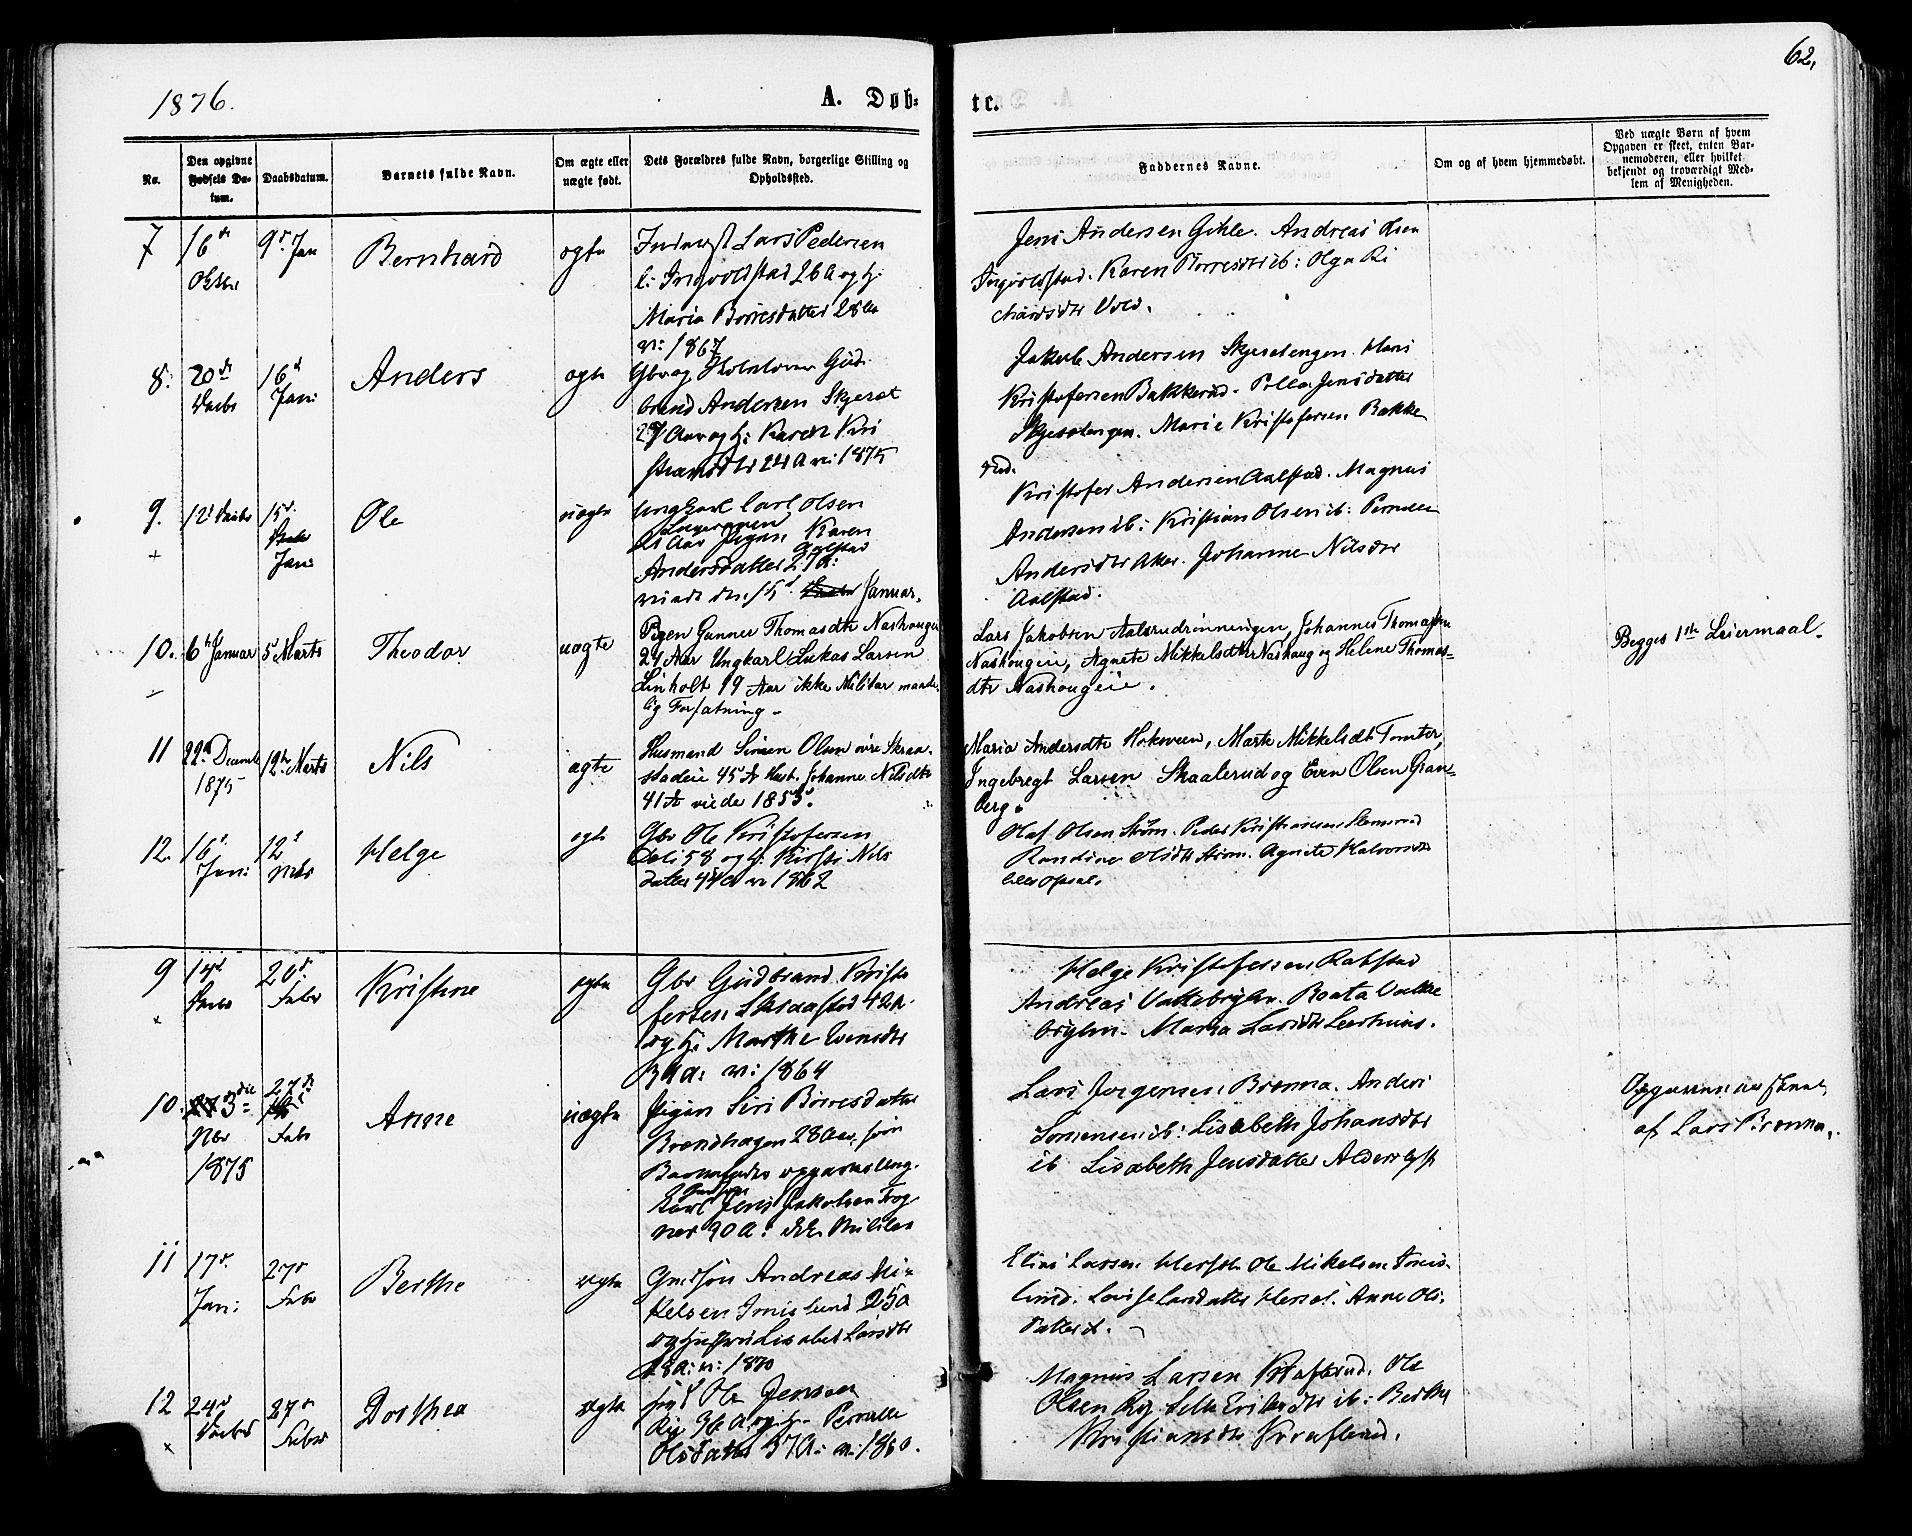 62,
1876.
A. Døb-
te.
No.
Den opgivne Fødsels Da-tum.
Daabsdatum.
Barnets fulde Navn.
Om ægte eller uægte født.
Dets Forældres fulde Navn, borgerlige Stilling og Opholdssted.
Faddernes Navne.
Om og af hvem hjemmedøbt.
Ved uægte Børn af hvem Opgaven er skeet, enten Bar-nemoderen, eller hvilket bekjendt og troværdigt Med-lem af Menigheden.
7 16de 9d Jan Bernhard ægte
Lars Pedersen
Ingvoldstad 26 A og H:
Maria Børresdatter 28 Aa
v: 1867
Jens Andersen Gihle. Andreas Olsen
Ingvoldstad. Karen Børresdtr ib: Olga Ri
chardsdtr Vold.
8. 20de 16d Jan: Anders ægte
Gud-
brand Andersen Skjeset
27 Aar og H: Karen Kri
stiansdtr 24 A v: 1875
Jakob Andersen Skjesetengen. Hans
Kristofersen Bakkerud. Jensdatter
Skjesetengen. Marie Kristofersen Bakke
rud.
9. 12d 15d Jan: Ole uægte
Ungkarl Carl Olsen
Aar Pigen Karen
Aalstad
Andersdatter 27 A:
viede den 15d Januar.
Kristofer Andersen Aalstad. Magnus
Andersen ib: Kristian Olsen ib: Pernelle
Andersdtr Aker. Johanne Nilsdtr
Aalstad.
10. 6te Januar 5d Marts Theodor uægte
Pigen Gunner Thomasdtr Nashougeie
24 Aar Ungkarl Lukas Larsen
Linholt 19 Aar ikke Militær maade-
lig Forfatning.
Lars Jakobsen Aalsrudrønningen, Johannes Thomassen
Nashougeie, Agnete Mikkelsdtr Nashaug og Helene Thomas-
dtr Nashougeie.
Begges 1ste Leiermaal.
11 22de Decemb 1875 12te Marts Nils ægte
Husmand Simen Olsen øvre Skraa-
stadeie 45 A Hust. Johanne Nilsdtr
41 A viede 1853.
Maria Andersdtr Hoksveen, Marte Mikkelsdtr Tomter,
Ingebregt Larsen Skaalerud og Even Olsen Gran-
berg.
12. 16d Jan: 12d Mts Helge ægte
Gbr Ole Kristofersen
58 og H: Kirsti Nils
datter 44 A v 1862
Olaf Olsen Strøm. Peder Kristiansen
Randine Olsdtr Strøm. Agnete Halvorsdtr
9 14d 20d Febr Kristine ægte
Gbr Gudbrand Kristo
fersen 42 A.
og H: Marthe Evensdtr
34 A: v: 1864
Helge Kristofersen Rabstad
Andreas Beata
Maria Larsdtr
10. 3die Nbr 1875 27de Febr Anne uægte
Pigen Siri Børresdatter
Brændhagen 28 Aar, som
Barnefader opgaves Ung-
karl Jens Jakobsen Trog
ner 90 A:
Lars Jørgensen Brønna. Anders
Simensen ib: Lisabeth Johansdtr
ib Lisabeth Jensdatter
Opgaven er skeet
af Lars Brønna.
11 17d Jan: 27d Febr Berthe ægte
Andreas Mi-
kelsen Imislund 25 A
Lisabet Larsdtr
28 A: v: 1870
Elias Larsen Hersel. Ole Mikelsen Imis-
lund. Louise Larsdatter Hersel. Anne Ols-
datter
12 24d 27d Febr Dorthea ægte
Ole Jensen
Rig 36 A og H: Pernelle
Olsdatter 37 A: v: 1860.
Magnus Larsen Krafterud. Ole
Olsen Rig. Eriksdtr ib: Berthe
Kristiansdtr